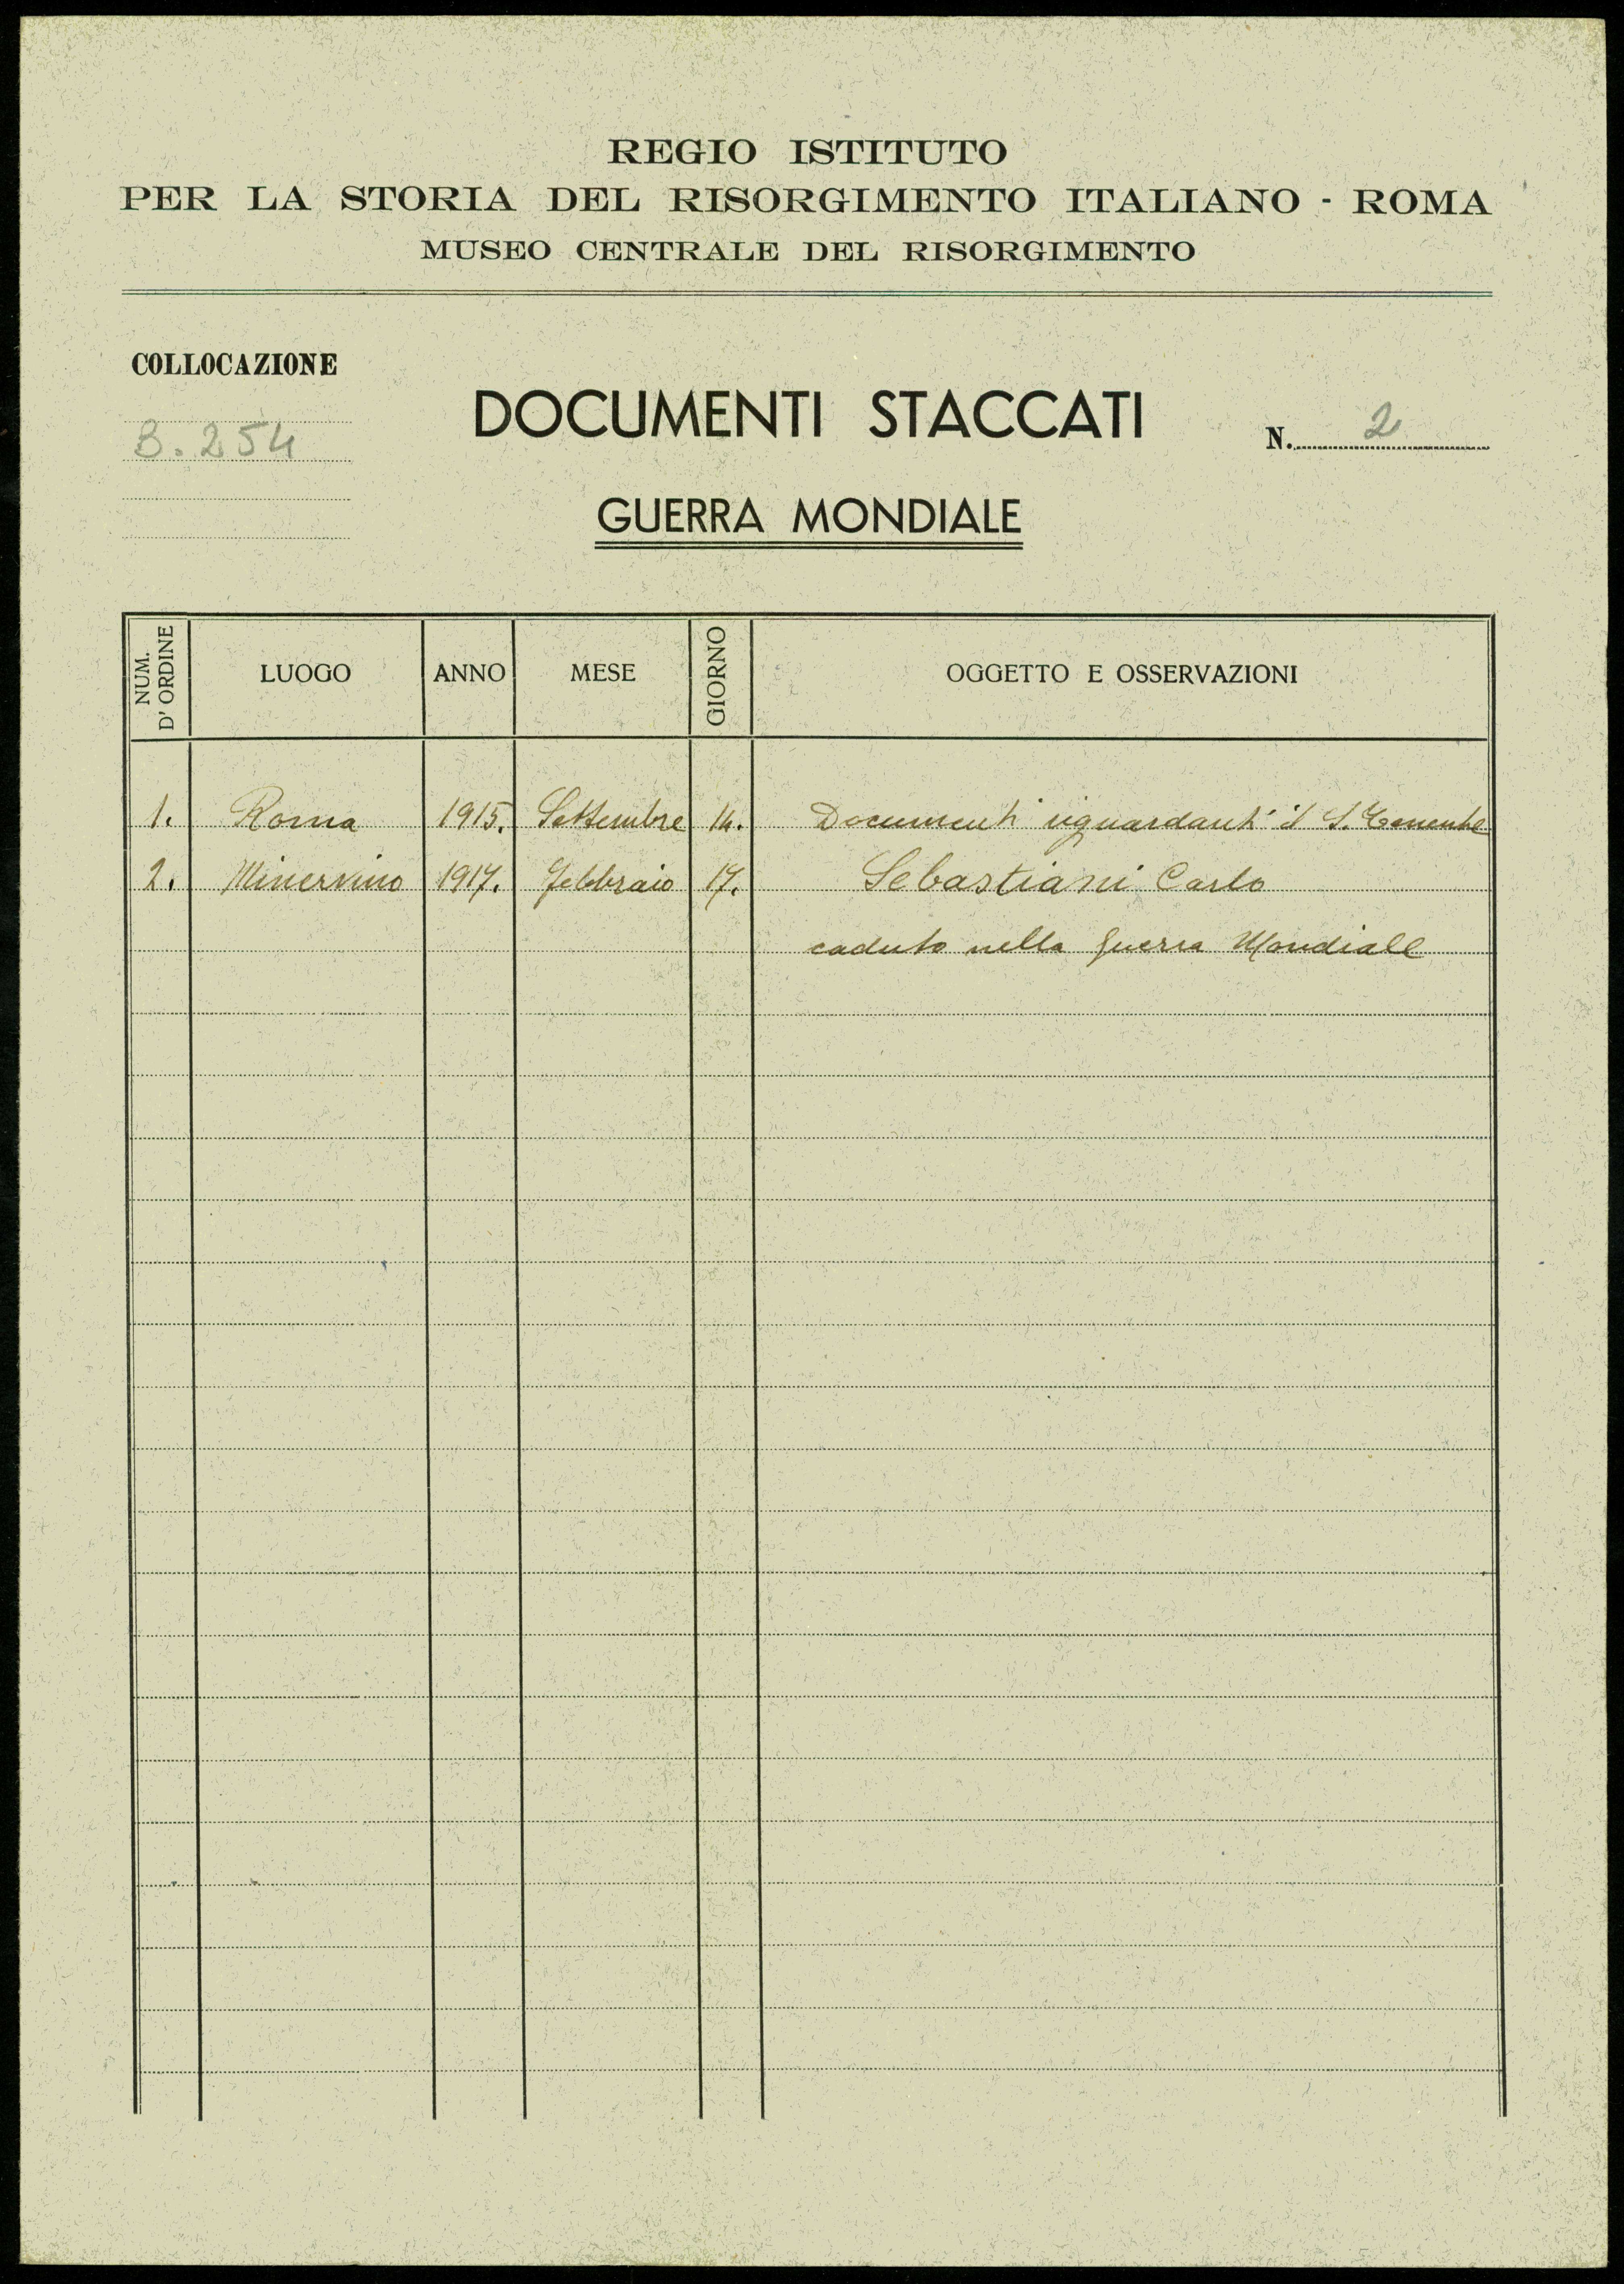 REGIO ISTITUTO
PER LA STORIA DEL RISORGIMENTO ITALIANO - ROMA
MUSEO CENTRALE DEL RISORGIMENTO
COLLOCAZIONE
B. 254
DOCUMENTI STACCATI
N. 2
GUERRA MONDIALE
NUM. D'ORDINE LUOGO ANNO MESE GIORNO OGGETTO E OSSERVAZIONI
1. Roma 1915. Settembre 14. Documenti riguardanti il S. Tenente
2. Minervino 1917. Febbraio 17. Sebastiani Carlo
caduto nella Guerra Mondiale